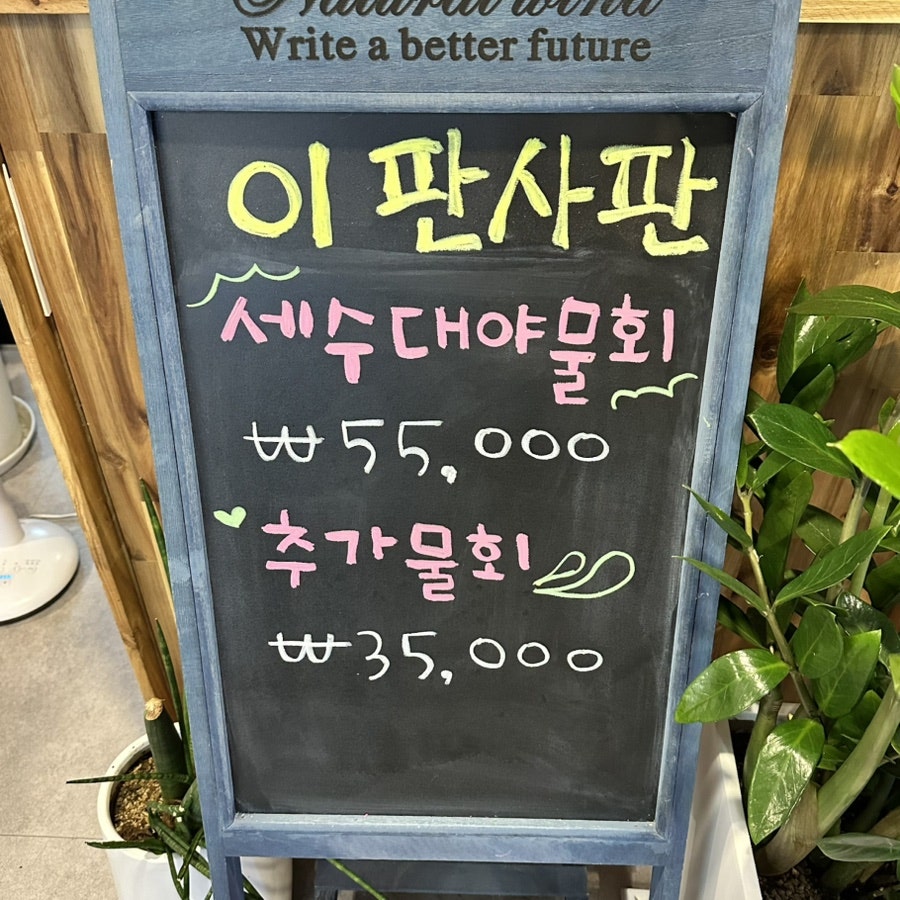 Natural wind
Write a better future
이 판사판
세수대야물회
₩55,000
추가물회
₩35,000